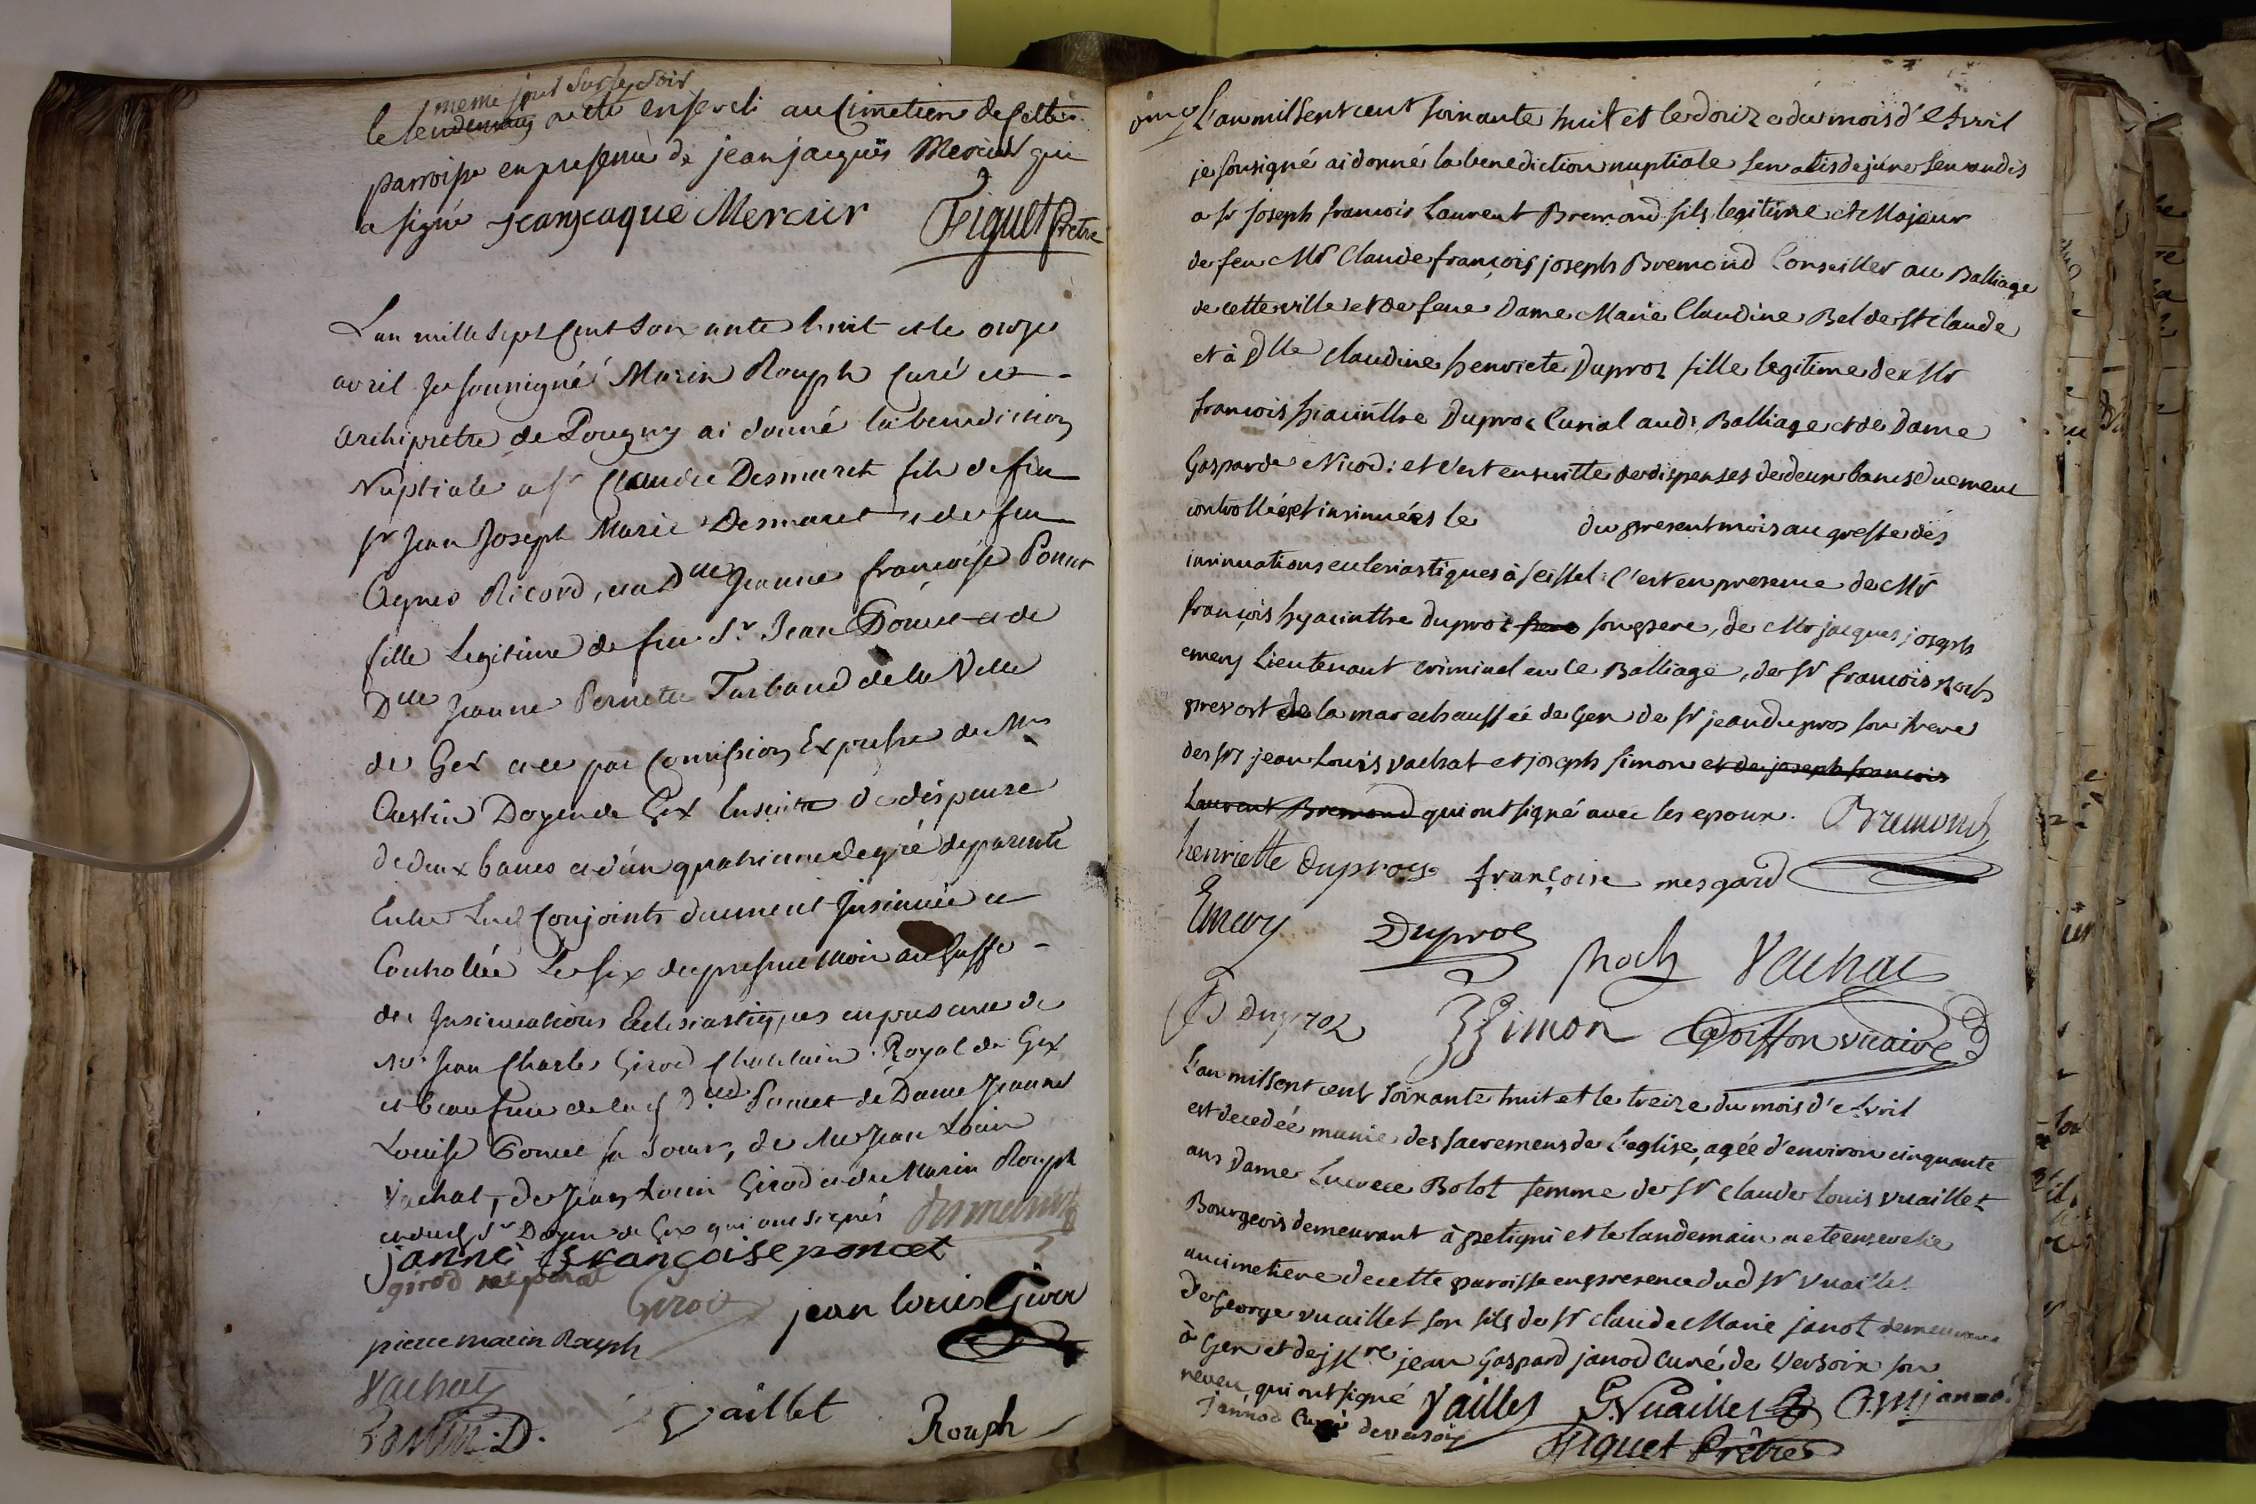 meme jour sur le soir
le lendemain a eté enseveli au Cimetiere de cette
parroisse en presence de jean jacques Mercier qui
a signé jean jaque Mercier Figuet Prêtre
L'an mille sept Cent Soix ante huit et le onze
avril Je soussigné Marin Rouph Curé et
archiprettre de Pougny ai donné la benediction
Nuptiale a sr Claude Desmaret fils de feu
sr Jean Joseph Marie Desmaret et de feu
Agnes Ricord, et a Dlle Jeanne françoise Poncet
fille Legitime de feu Sr Jean Poncet et de
Dlle Jeanne Pernette Tarbaud de la Ville
de Gex et ce par Comission Expresse de Mre
Castin Doyen de Gex Ensuitte de dispense
de deux bancs et d'un quatrieme degré de parenté
Entre Lesd Conjoints duement Insinuée et
Controllée Le six du present mois au Greffe
des Insinuations Ecclesiastiques en presence de
Mr Jean Charles Girod Chatelain Royal de Gex
et beau frere de lad Dlle Poncet de Dame Jeanne
Louise Poncet sa Soeur, de Me Jean Louis
Vachat, de Jean Louis Girod et de Marin Rouph
et dud Sr Doyen de Gex qui ont signés Desmaret
janne françoise poncet
girod née poncet Girod jean louis Girod
pierre marin Rouph
Vachat
Castin. D. Vaillet Rouph
L'an mil sept cent soixante huit et le douze du mois d'Avril
je sousigné ai donné la benediction nuptiale servatis de jure servandis
a sr joseph francois Laurent Bremond fils legitime et Majeur
de feu Mr Claude françois joseph Bremond Conseiller au Balliage
de cette ville et de feue Dame Marie Claudine Bel de St Claude
et à Dlle Claudine henriete Duproz fille legitime de Mr
francois hiacinthe Duproz Curial aud: Balliage et de Dame
Gasparde Nicod: et c'est ensuitte de dispenses de deux bancs duement
controllées et insinuées le du present mois au greffe des
insinuations eclesiastiques à seissel: c'est en presence de Mr
françois hyacinthe duproz frere son pere, de Mr jacques joseph
emery Lieutenant criminel en ce Balliage, de sr francois roch
prevost de la marechaussée de Gex de sr jean duproz son frere
des srs jean Louis vachat et joseph simon et de joseph francois
Laurent Bremond qui ont signé avec les epoux. Bremond
henriette duproz françoise mesgard
Emery Duproz Roch Vachat
Duproz JSimon Goiffon vicaire
L'an mil sept cent soixante huit et le treize du mois d'Avril
est decedée munie des sacremens de l'eglise, agée d'environ cinquante
ans Dame Lucrece Bolot femme de sr Claude Louis vuaillet
Bourgeois demeurant à petigni et le landemain a eté ensevelie
au cimetiere de cette paroisse en presence dud sr vuaillet
de George vuaillet son fils de sr Claude Marie janot demeurant
à Gex et de Mre jean Gaspard janod Curé de Versoix son
neveu qui ont signé Vaillet G. Vuaillet C. M janod
jannod Curé de versoix Figuet Prêtre